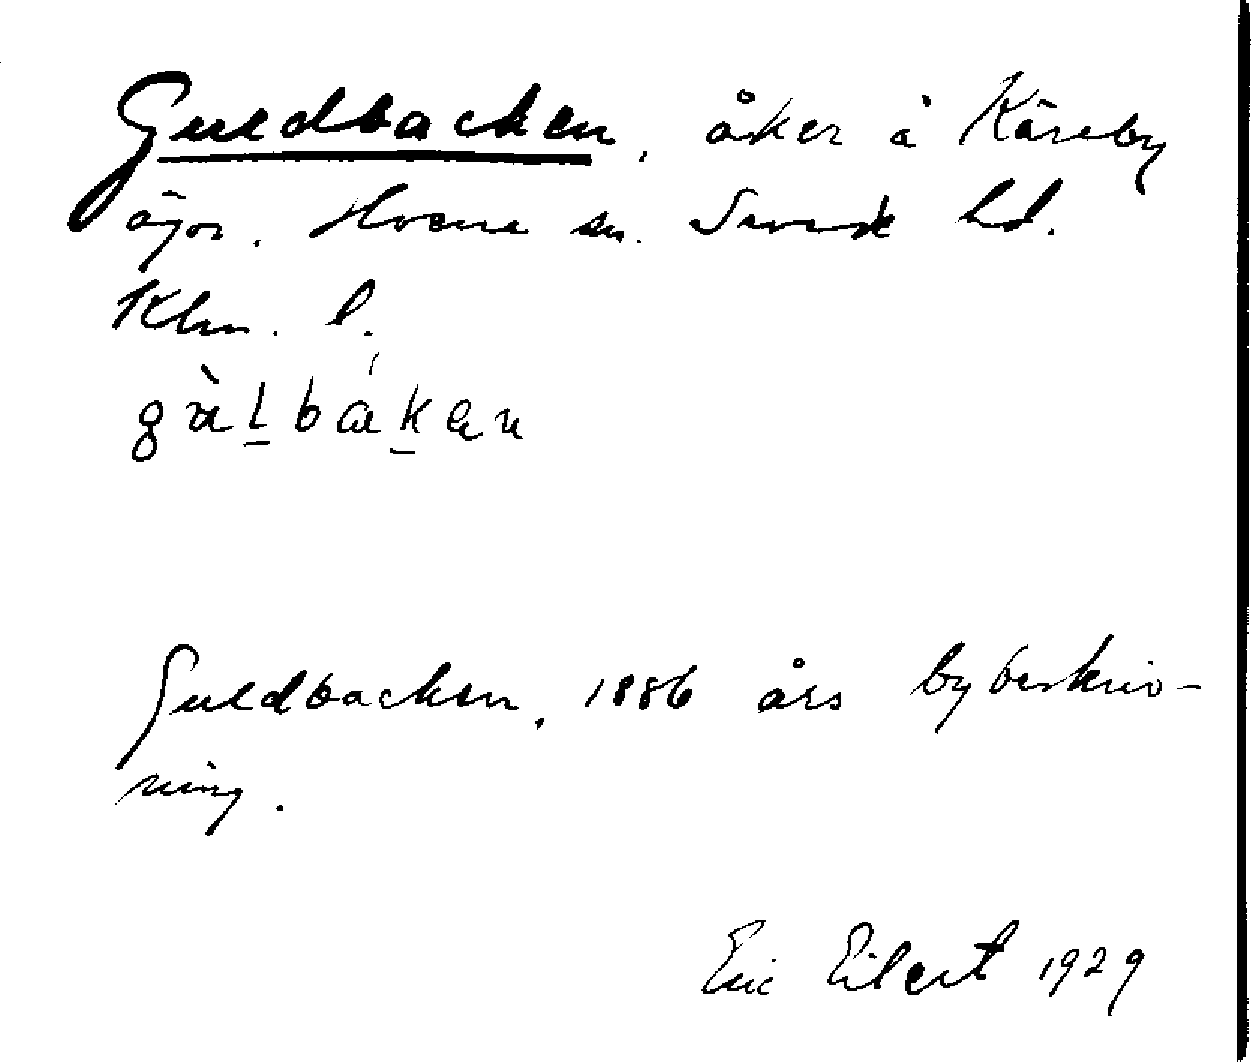 Guldbacken, åker å Käreby
ägor. Hvena sn. Sevede hd.
Klm. l.
gu̇̀lbákɐn
Guldbacken, 1886 års bybeskriv-
ning.
Eric Eilert 1929